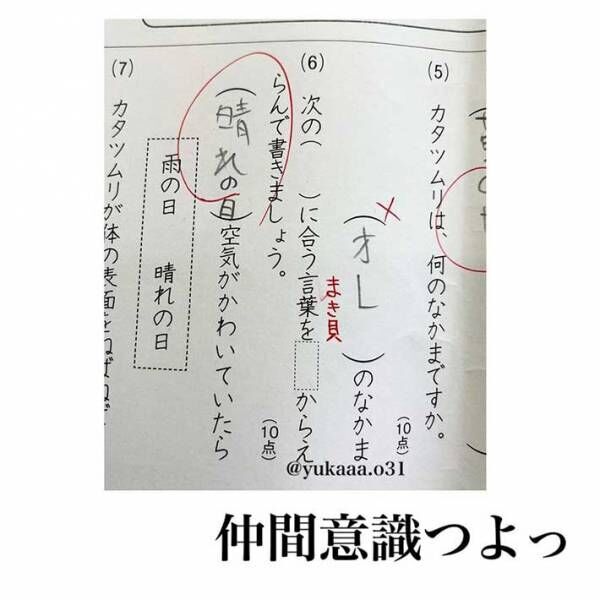 (5) カタツムリは、何のなかまですか。
(10点)
(オレ)のなかま
まき貝
(6) 次の( )に合う言葉を からえ
らんで書きましょう。
(10点)
(晴れの日)空気がかわいていたら
雨の日 晴れの日
(7) カタツムリが体の表面をねばねば
@yukaaa.o31
仲間意識つよっ